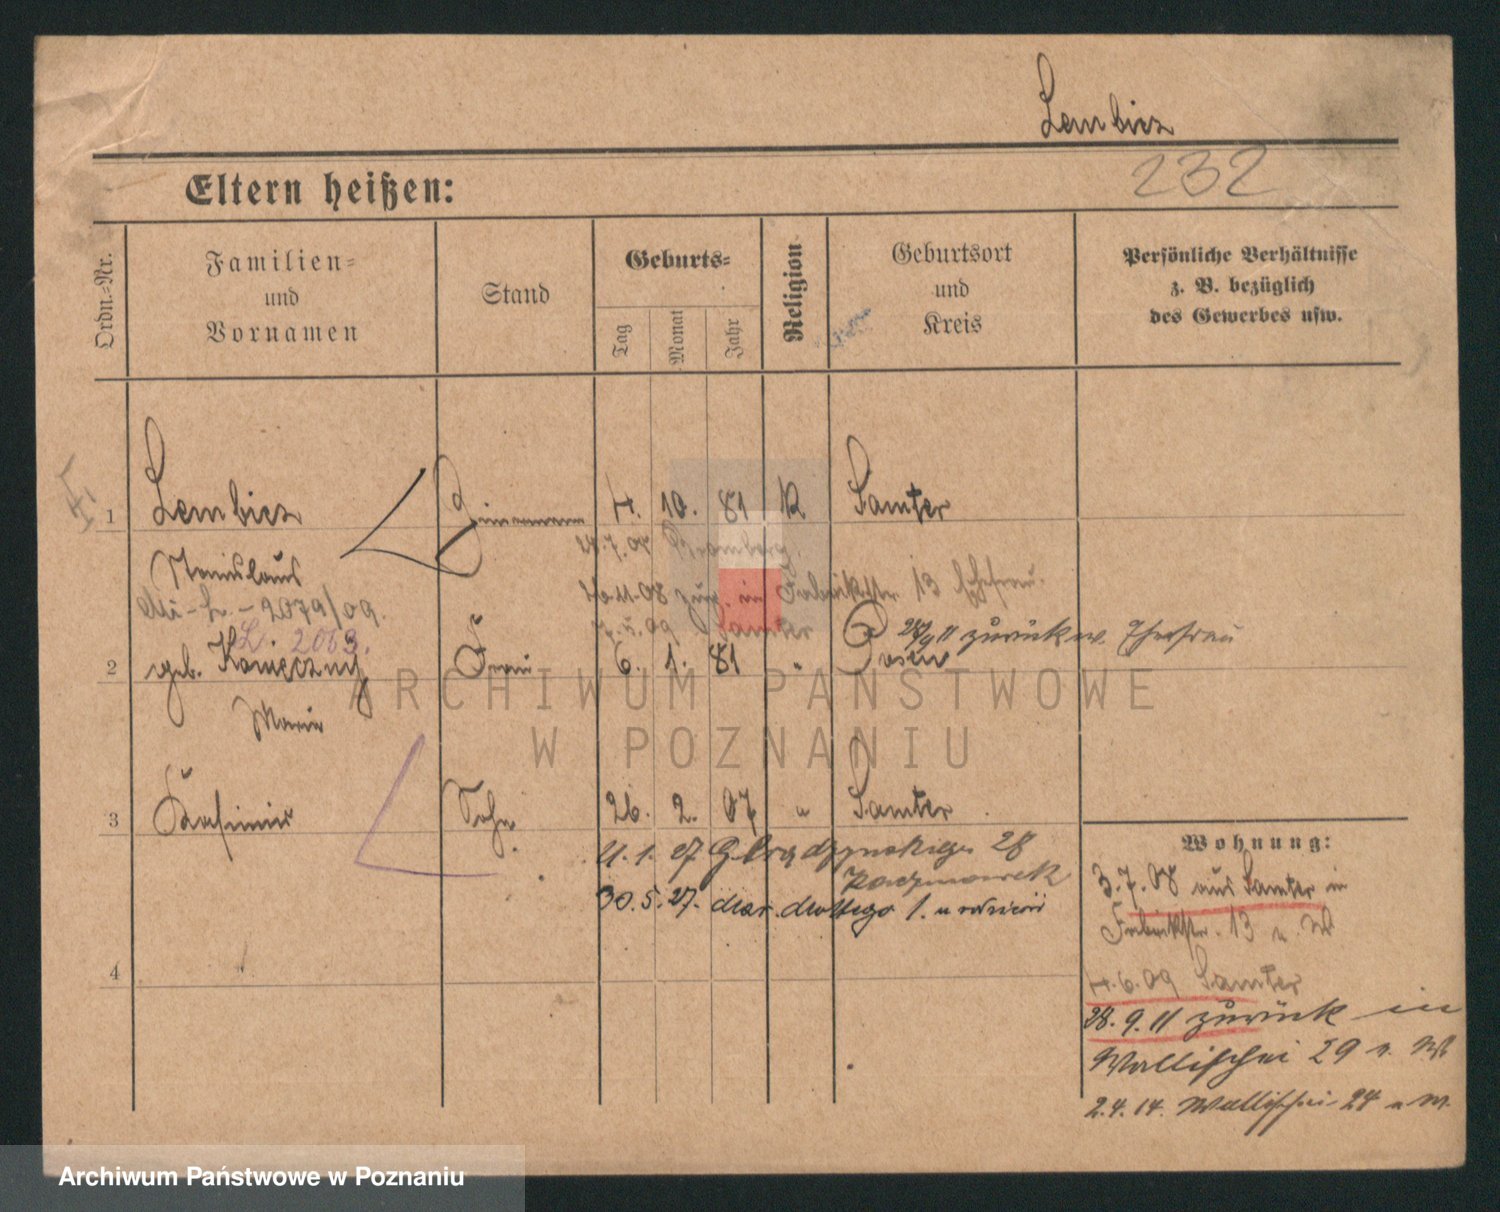 Lembicz
232
Eltern heißen:
Ordn.-Nr.
Familien- und Vornamen
Stand
Geburts-
Tag
Monat
Jahr
Religion
Geburtsort und Kreis
Persönliche Verhältnisse
z. B. bezüglich
des Gewerbes usw.
1 Lembicz 4. 10. 81 K Samter
24.7.08 Bromberg
Stanislaus
11.08 in Fabrikstr. 13
2079/09.
09 Samter 28/9 11 zurück
L. 2063.
2 geb. Konieczny Frau 6. 1. 81 " Posen
Maria
ARCHIWUM PAŃSTWOWE
W POZNANIU
3 Kasimir Sohn 26. 2. 07 " Samter
Wohnung:
21. 1. 27 28
Kaczmarek
3.7.08 aus Samter in
30. 5. 27. 1. u rodziców
Fabrikstr. 13
4
4.6.09 Samter
28.9.11 zurück in
Wallischei 29
2.4.14. Wallischei 24
Archiwum Państwowe w Poznaniu